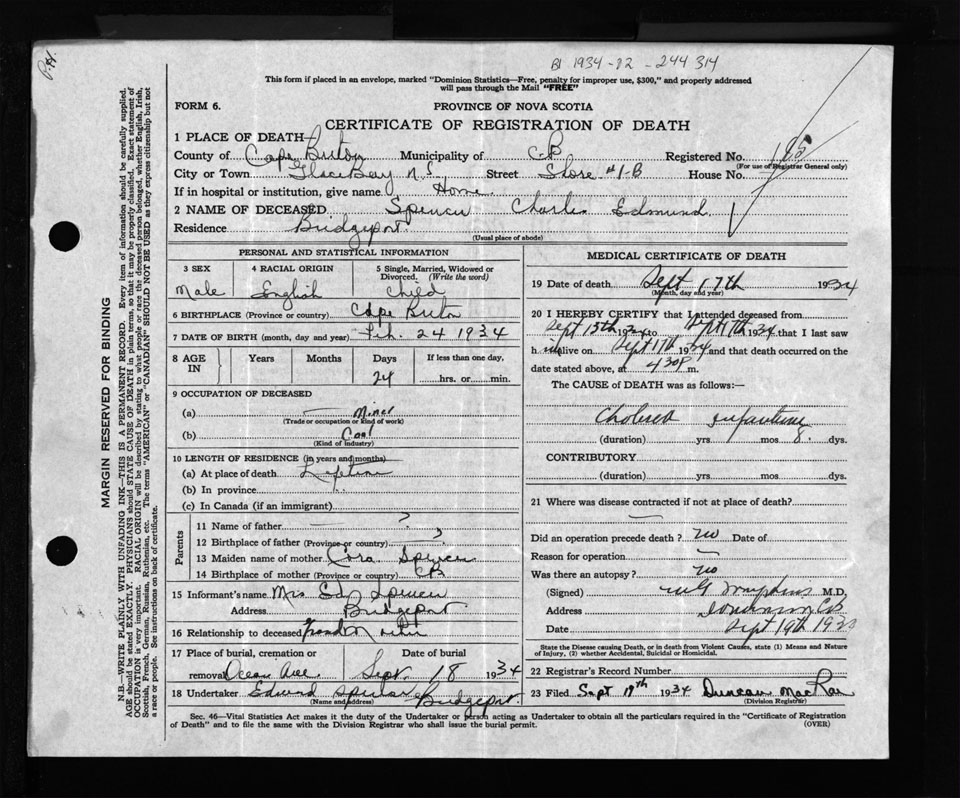 P.H.
BI 1934-02-244314
This form if placed in an envelope, marked "Dominion Statistics—Free, penalty for improper use, $300," and properly addressed
will pass through the Mail "FREE"
FORM 6.
PROVINCE OF NOVA SCOTIA
CERTIFICATE OF REGISTRATION OF DEATH
1 PLACE OF DEATH—
County of Cape Breton Municipality of CB Registered No. 185
(For use of Registrar General only)
City or Town Glace Bay N.S. Street Shore #1-B House No.
If in hospital or institution, give name Home
2 NAME OF DECEASED Spencer Charles Edmund
Residence Bridgeport
(Usual place of abode)
PERSONAL AND STATISTICAL INFORMATION
3 SEX 4 RACIAL ORIGIN 5 Single, Married, Widowed or
Divorced. (Write the word)
Male English Child
6 BIRTHPLACE (Province or country) Cape Breton
7 DATE OF BIRTH (month, day and year) Feb. 24 1934
8 AGE IN Years Months Days If less than one day,
24 hrs. or min.
9 OCCUPATION OF DECEASED
(a) — Miner
(Trade or occupation or kind of work)
(b) Coal
(Kind of industry)
10 LENGTH OF RESIDENCE (in years and months)
(a) At place of death Lifetime
(b) In province
(c) In Canada (if an immigrant)
Parents
11 Name of father — ?
12 Birthplace of father (Province or country) — ?
13 Maiden name of mother Cora Spencer
14 Birthplace of mother (Province or country) CB
15 Informant's name Mrs. Ed Spencer
Address Bridgeport
16 Relationship to deceased Grandmother
17 Place of burial, cremation or Date of burial
removal Ocean Ave Sept. 18 1934
18 Undertaker Edward Spencer Bridgeport
(Name and address)
MEDICAL CERTIFICATE OF DEATH
19 Date of death Sept 17th 1934
(Month, day and year)
20 I HEREBY CERTIFY that I attended deceased from
Sept 15th 1934 to Sept 17th 1934 that I last saw
h im alive on Sept 17th 1934 and that death occurred on the
date stated above, at 430 P m.
The CAUSE of DEATH was as follows:—
Cholera infantum
(duration) yrs. mos. 8. dys.
CONTRIBUTORY
(duration) yrs. mos. dys.
21 Where was disease contracted if not at place of death?
—
Did an operation precede death? no Date of
Reason for operation —
Was there an autopsy? no
(Signed) M.D.
Address Dominion CB
Date Sept 19th 193
State the Disease causing Death, or in death from Violent Causes, state (1) Means and Nature
of Injury, (2) whether Accidental, Suicidal or Homicidal.
22 Registrar's Record Number
23 Filed Sept 19th 1934 Duncan MacRae
(Division Registrar)
Sec. 46—Vital Statistics Act makes it the duty of the Undertaker or person acting as Undertaker to obtain all the particulars required in the "Certificate of Registration
of Death" and to file the same with the Division Registrar who shall issue the burial permit. (OVER)
MARGIN RESERVED FOR BINDING
N.B.—WRITE PLAINLY WITH UNFADING INK—THIS IS A PERMANENT RECORD. Every item of information should be carefully supplied.
AGE should be stated EXACTLY. PHYSICIANS should STATE CAUSE OF DEATH in plain terms, so that it may be properly classified. Exact statement of
OCCUPATION is very important. RACIAL ORIGIN will be described by stating to what people or race the deceased person belonged, whether English, Irish,
Scottish, French, German, Russian, Ruthenian, etc. The terms "AMERICAN" or "CANADIAN" SHOULD NOT BE USED as they express citizenship but not
a race or people. See instructions on back of certificate.